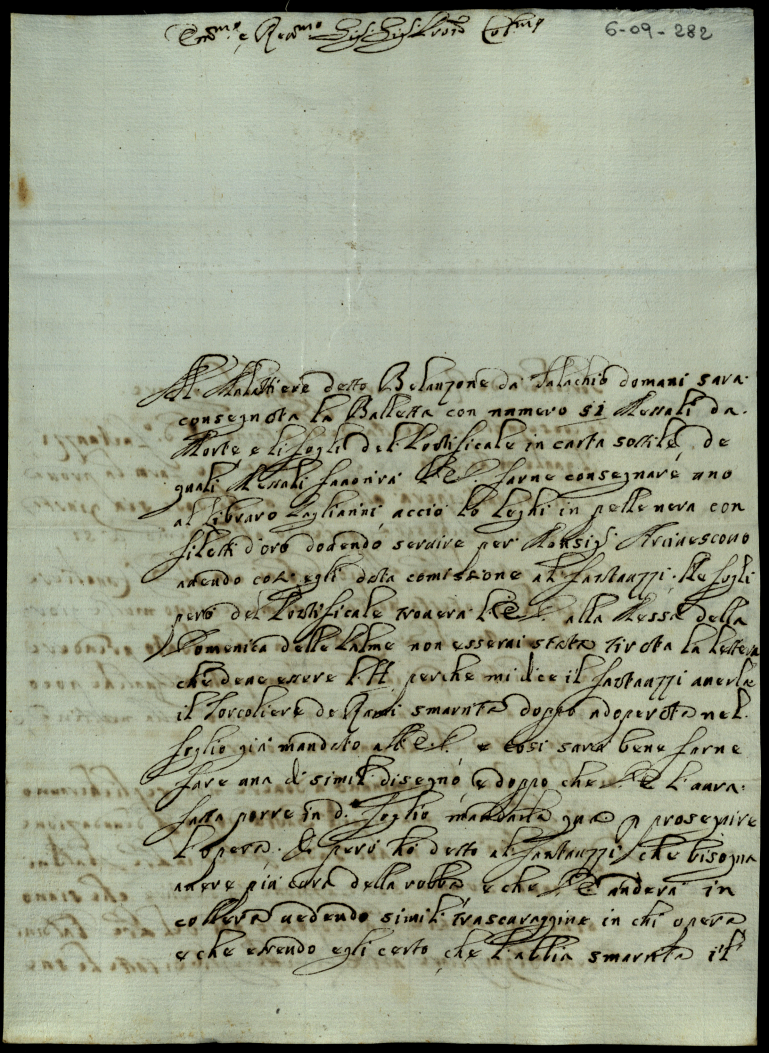 Em.mo e Rev.mo Sig.r Sig.r Pron Col.mo
6-09-282
Al Mulattiere detto Belanzone da Palachio domani sara
consegnota la Balletta con numero 51 Messali da
Morte e li fogli del Pontificale in carta sottile, de
quali Messali favorirà V.E. farne consegnare uno
al libraro Zaglianni accio lo leghi in pelle nera con
filetti d'oro dovendo servire per Monsig.r Arcivescovo
avendo cosi egli data comissione al Fantauzzi. Ne fogli
però del Pontificale troverà l'E.V. alla Messa della
Domenica delle Palme non esservi stata tirata la lettera
che deve essere l'H perche mi dice il Fantauzzi averla
il Torcoliere de Rami smarrita doppo adoperata nel
foglio già mandato all'E.V. e così sarà bene farne
fare una di simil disegno, e doppo che V.E. l'aura
fatta porre in d.o foglio mandarla qua p proseguire
l'opera. Io però hò detto al Fantauzzi che bisogna
avere più cura della robba e che V.E. anderà in
collera vedendo simili trascuraggine in chi opera
e che essendo egli certo che l'abbia smarrita il